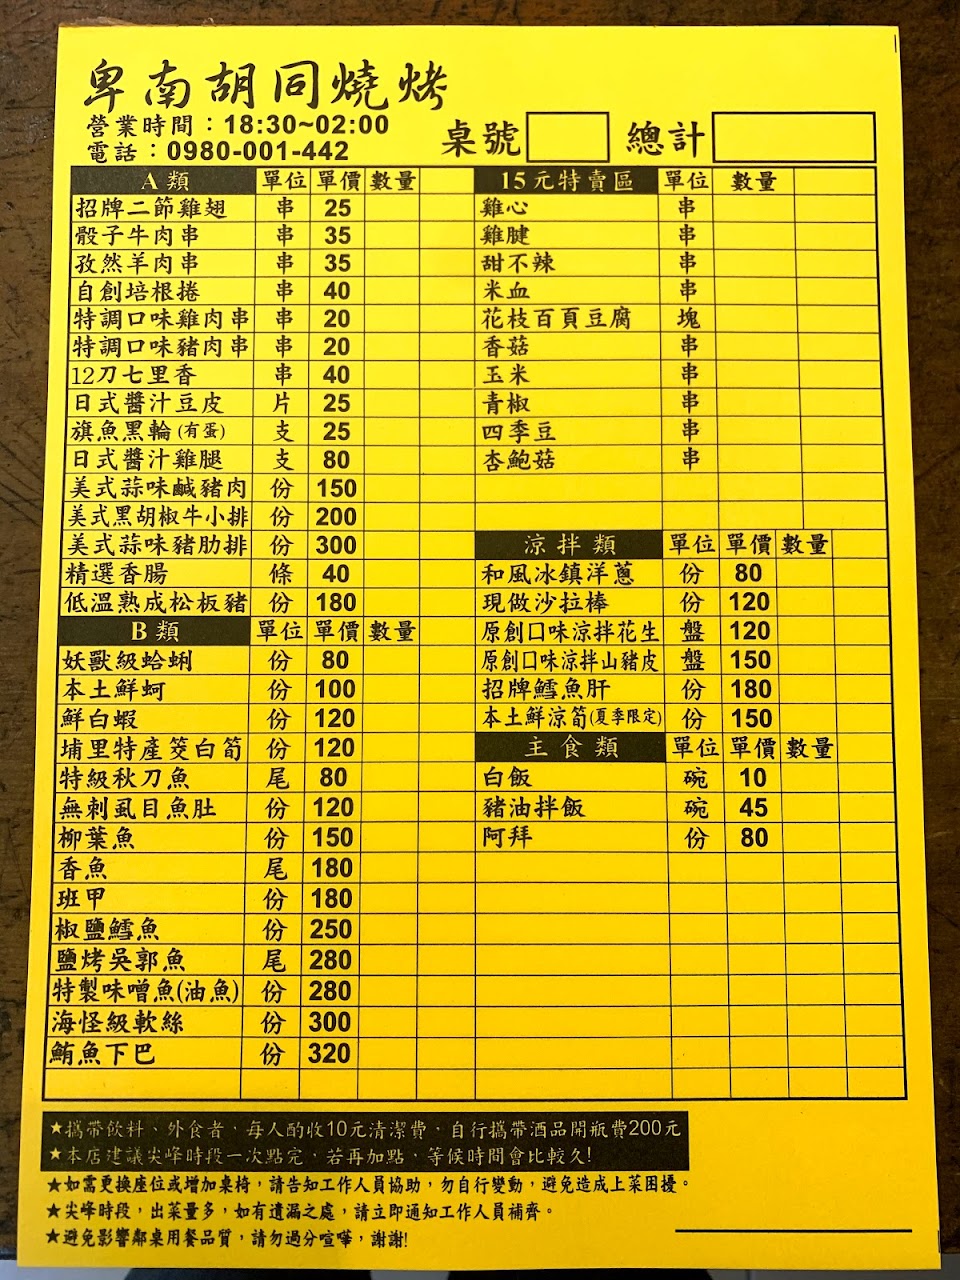 卑南胡同燒烤
營業時間：18:30~02:00
電話：0980-001-442
桌號 總計
A 類 單位 單價 數量
招牌二節雞翅 串 25
骰子牛肉串 串 35
孜然羊肉串 串 35
自創培根捲 串 40
特調口味雞肉串 串 20
特調口味豬肉串 串 20
12刀七里香 串 40
日式醬汁豆皮 片 25
旗魚黑輪(有蛋) 支 25
日式醬汁雞腿 支 80
美式蒜味鹹豬肉 份 150
美式黑胡椒牛小排 份 200
美式蒜味豬肋排 份 300
精選香腸 條 40
低溫熟成松板豬 份 180
B 類 單位 單價 數量
妖獸級蛤蜊 份 80
本土鮮蚵 份 100
鮮白蝦 份 120
埔里特產筊白筍 份 120
特級秋刀魚 尾 80
無刺虱目魚肚 份 120
柳葉魚 份 150
香魚 尾 180
班甲 份 180
椒鹽鱈魚 份 250
鹽烤吳郭魚 尾 280
特製味噌魚(油魚) 份 280
海怪級軟絲 份 300
鮪魚下巴 份 320
15元特賣區 單位 數量
雞心 串
雞腱 串
甜不辣 串
米血 串
花枝百頁豆腐 塊
香菇 串
玉米 串
青椒 串
四季豆 串
杏鮑菇 串
涼拌類 單位 單價 數量
和風冰鎮洋蔥 份 80
現做沙拉棒 份 120
原創口味涼拌花生 盤 120
原創口味涼拌山豬皮 盤 150
招牌鱈魚肝 份 180
本土鮮涼筍(夏季限定) 份 150
主食類 單位 單價 數量
白飯 碗 10
豬油拌飯 碗 45
阿拜 份 80
★攜帶飲料、外食者，每人酌收10元清潔費，自行攜帶酒品開瓶費200元
★本店建議尖峰時段一次點完，若再加點，等候時間會比較久!
★如需更換座位或增加桌椅，請告知工作人員協助，勿自行變動，避免造成上菜困擾。
★尖峰時段，出菜量多，如有遺漏之處，請立即通知工作人員補齊。
★避免影響鄰桌用餐品質，請勿過分喧嘩，謝謝!